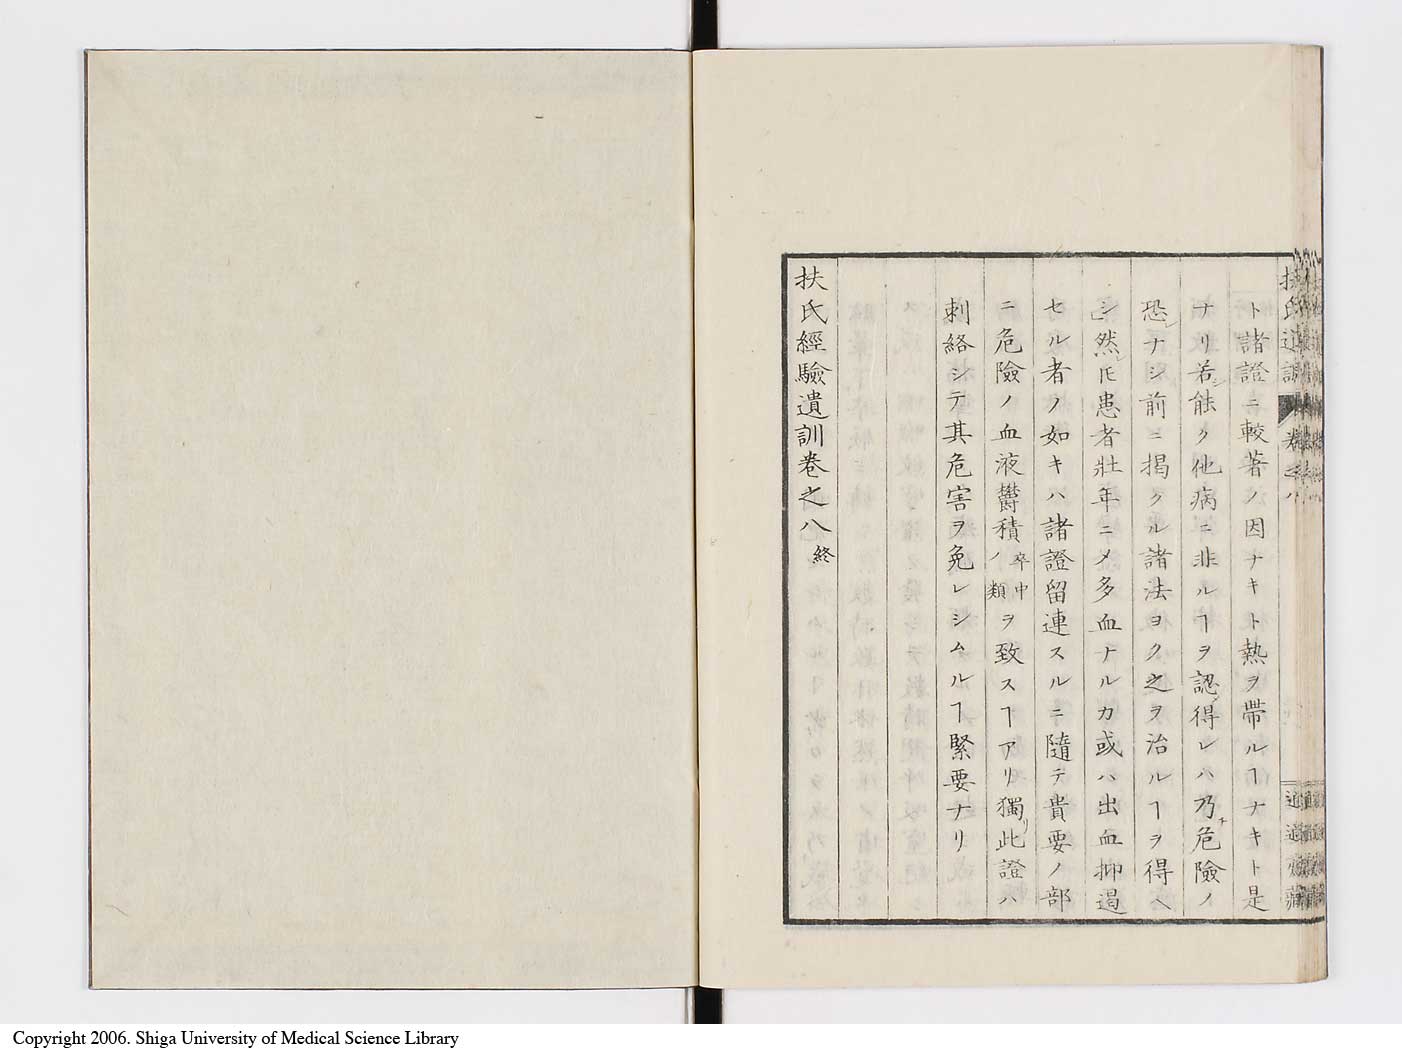 ト諸證ニ較著ノ因ナキト熱ヲ帶ルヿナキト是
ナリ若シ能ク他病ニ非ルヿヲ認得レハ乃チ危險ノ
恐レナシ前ニ揭クル諸法ヨク之ヲ治ルヿヲ得ヘ
シ然レ𪜈患者壯年ニメ多血ナルカ或ハ出血抑遏
セル者ノ如キハ諸證留連スルニ隨テ貴要ノ部
ニ危險ノ血液鬱積卒中ノ類ヲ致スヿアリ獨リ此證ハ
刺絡シテ其危害ヲ免レシムルヿ緊要ナリ
扶氏經驗遺訓卷之八終
Copyright 2006. Shiga University of Medical Science Library